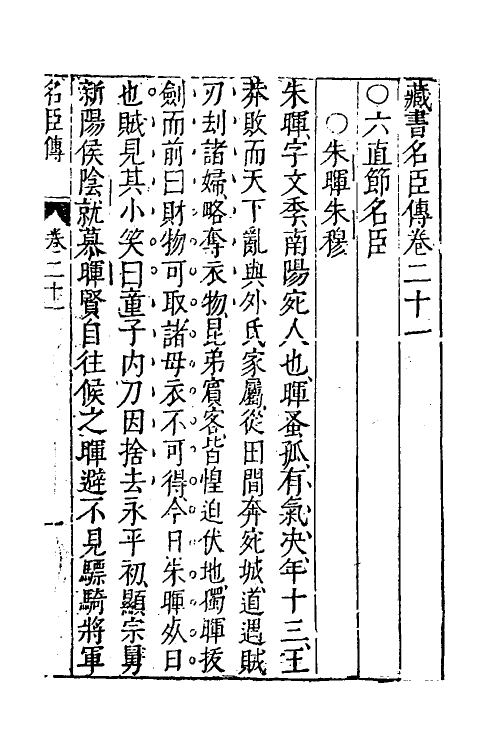 藏書名臣傳卷二十一
○六直節名臣
○朱暉朱穆
朱暉字文季南陽宛人也暉蚤孤有氣决年十三王
莽敗而天下亂與外氏家屬從田間奔宛城道遇賊
刃刦諸婦略奪衣物昆弟賓客皆惶迫伏地獨暉拔
劍而前曰財物可取諸母衣不可得今日朱暉死日
也賊見其小笑曰童子內刀因捨去永平初顯宗舅
新陽侯陰就慕暉賢自往候之暉避不見驃騎將軍
名臣傳 卷二十一 一